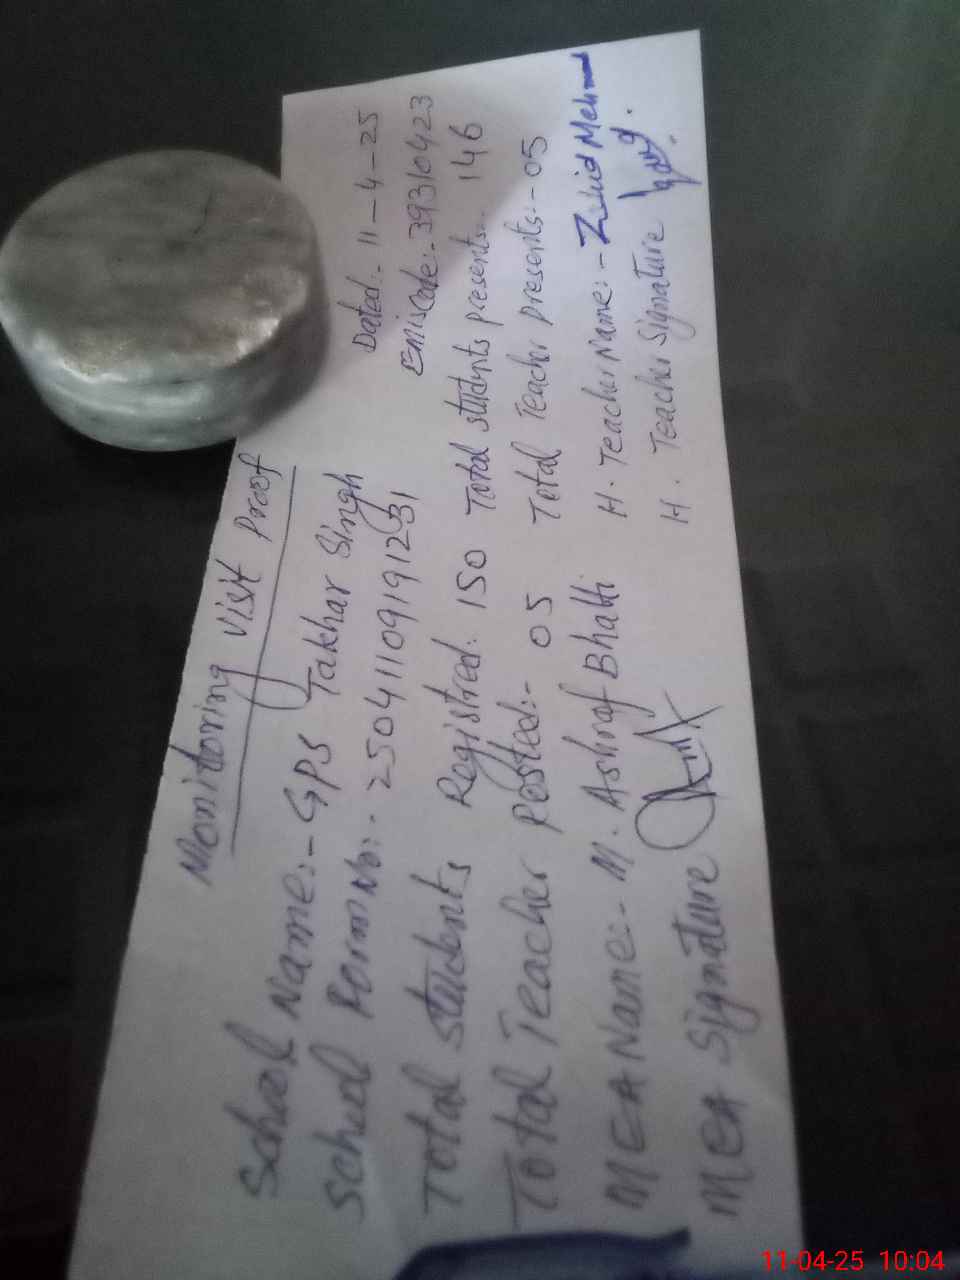 Monitoring Visit Proof
School Name:- GPS Takhar Singh Dated:- 11-4-25
School Form No:- 25041109191231 EmisCode:- 39310423
Total Students Registred: 150 Total students presents:- 146
Total Teacher Posted:- 05 Total Teacher presents:- 05
MEA Name:- M. Ashraf Bhatti H. Teacher Name:- Zahid Mehmood
MEA Signature H. Teacher Signature
11-04-25 10:04